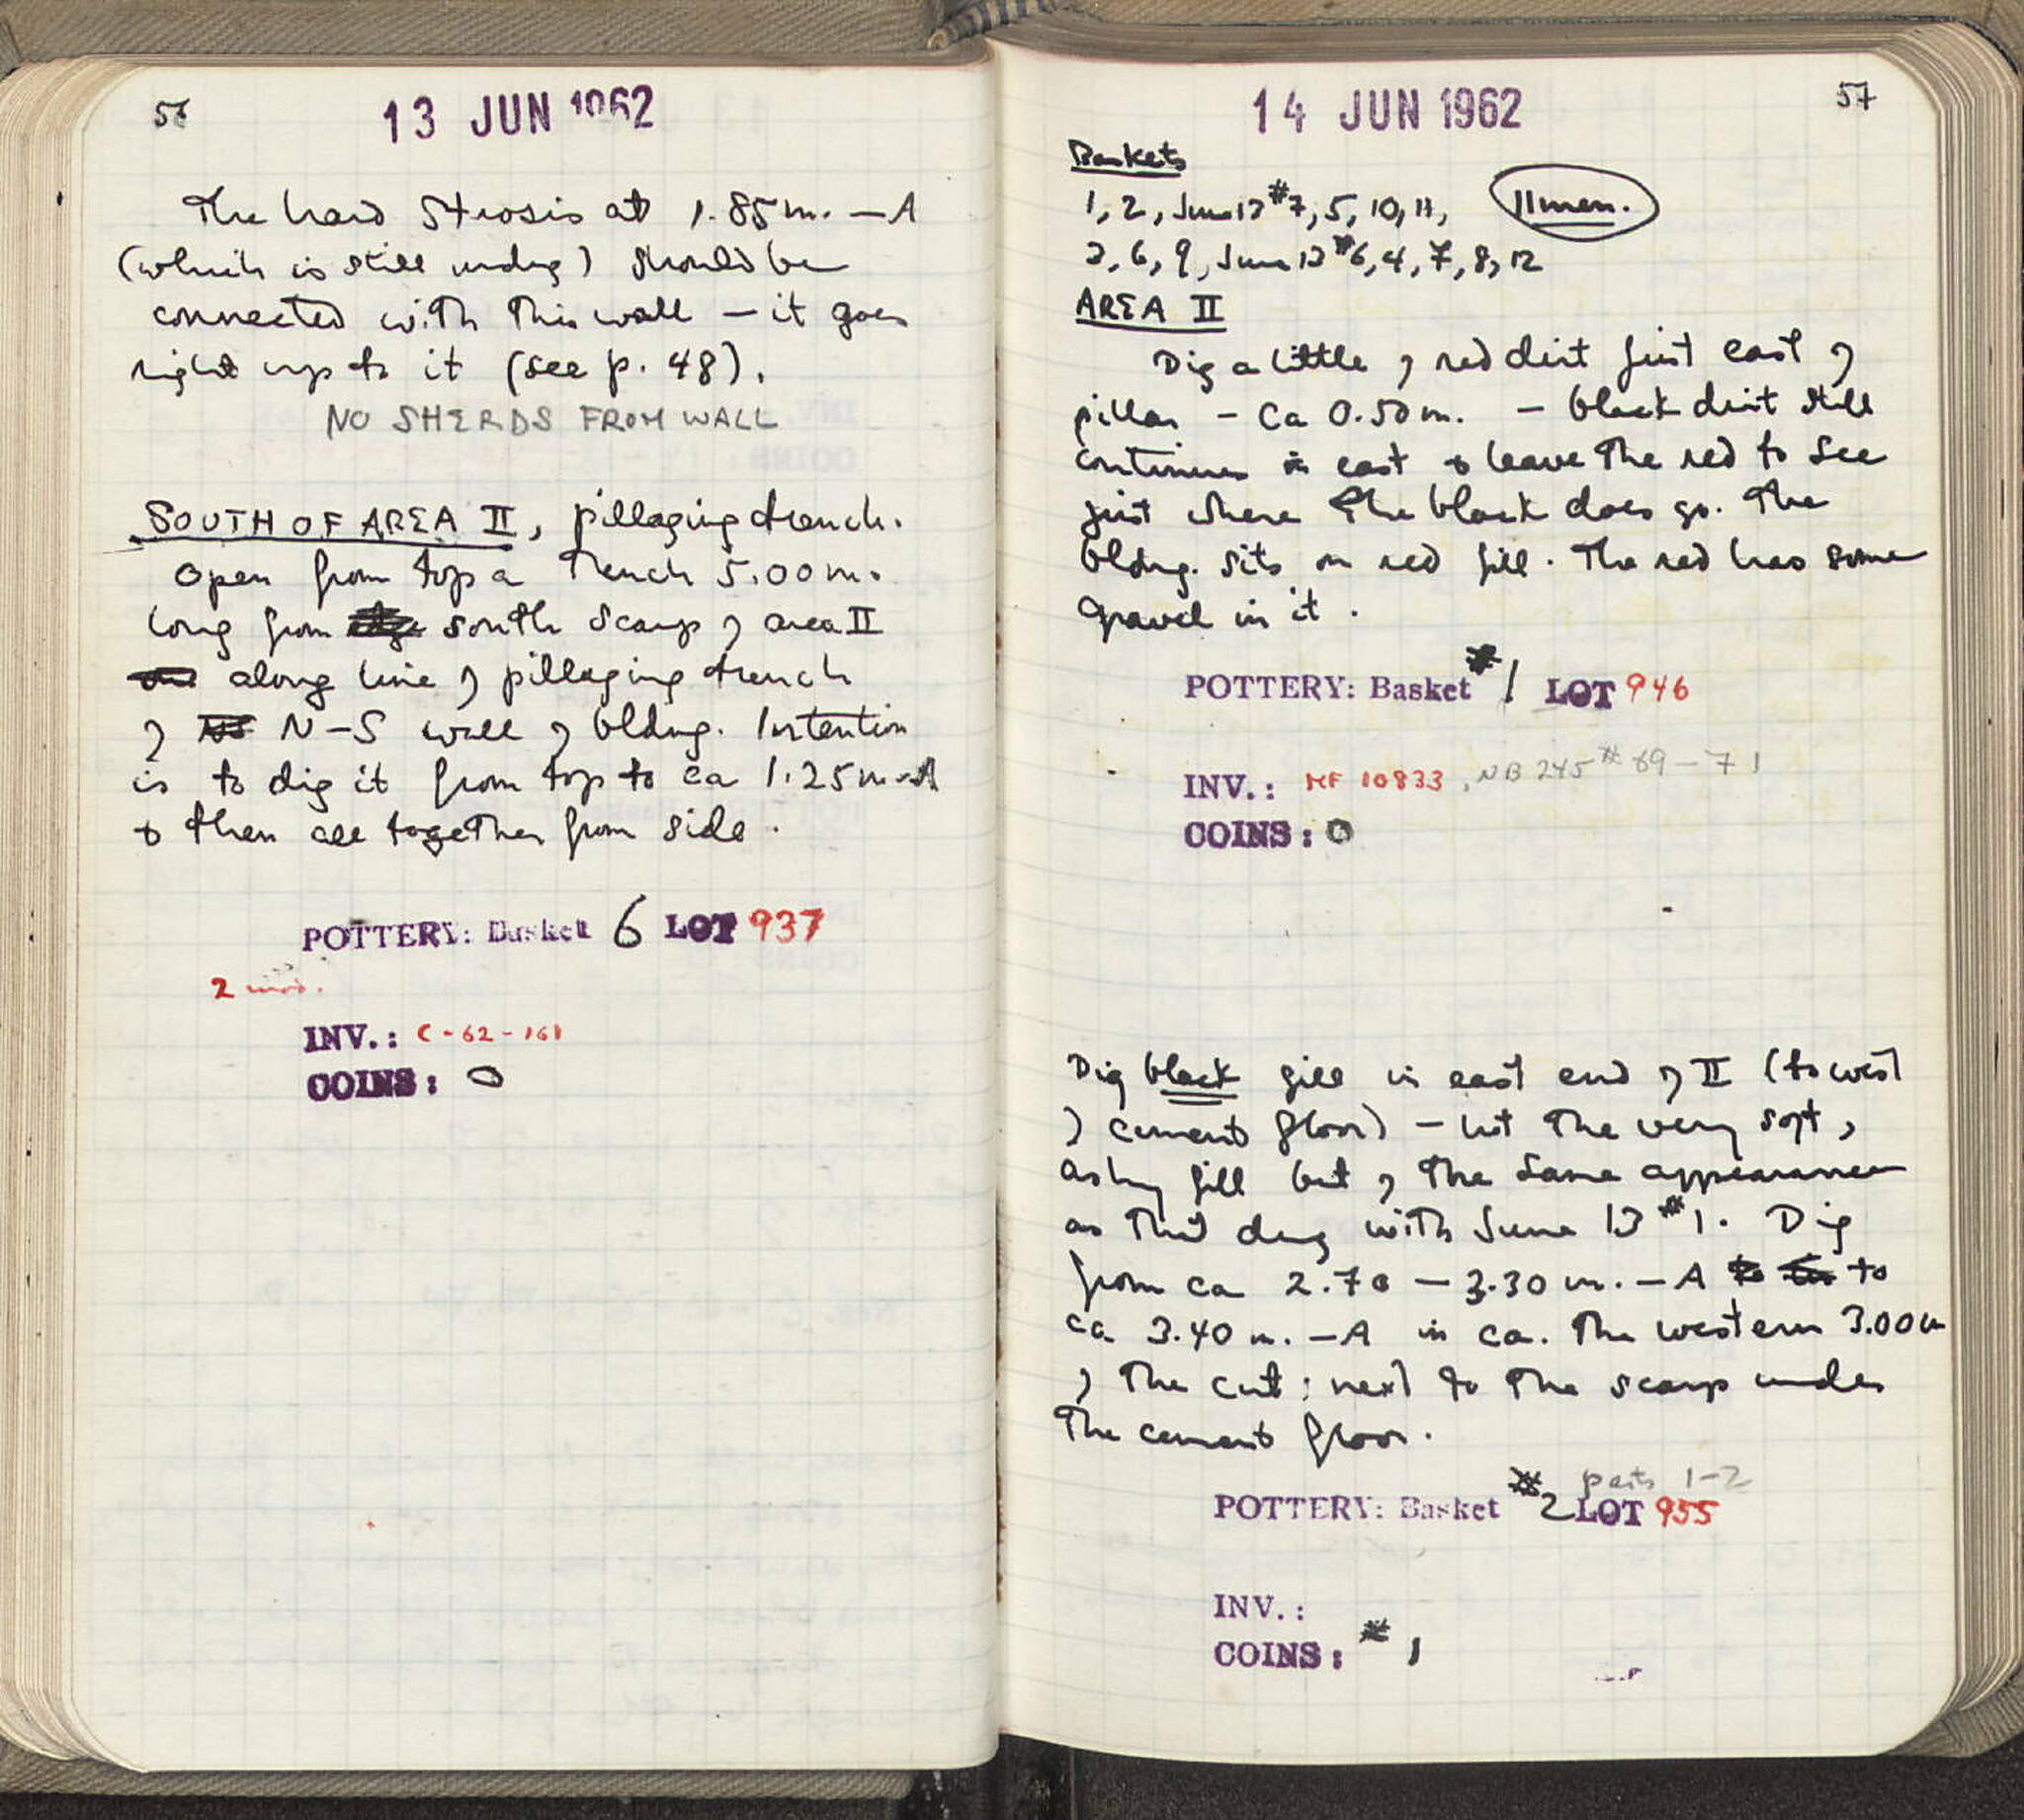 56
13 JUN 1962
The hard Strosis at 1.85m. – A
(which is still undug) should be
connected with this wall – it goes
right up to it (see p. 48).
NO SHERDS FROM WALL
SOUTH OF AREA II, pillaging trench.
Open from top a trench 5.00m.
long from south scarp of area II
along line of pillaging trench
of N–S wall of bldng. Intention
is to dig it from top to ca 1.25m–A
& then all together from side.
POTTERY: Basket 6 LOT 937
2 
INV.: C-62-161
COINS: 0
57
14 JUN 1962
Baskets
1, 2, June 13 #7, 5, 10, 11,
11 men.
3, 6, 9, June 13 #6, 4, 7, 8, 12
AREA II
Dig a little of red dirt just east of
pillar – ca 0.50m. – black dirt still
continues in east & leave the red to see
just where the black does go. The
bldng. sits on red fill. The red has some
gravel in it.
POTTERY: Basket #1 LOT 946
INV.: MF 10833, NB 245 #69–71
COINS: 0
Dig black fill in east end of II (to west
of cement floor) – hit the very soft,
ashy fill but of the same appearance
as that dug with June 13 #1. Dig
from ca 2.70 – 3.30 m. – A to
ca 3.40 m. – A in ca. the western 3.00m
of the cut; next to the scarp under
the cement floor.
POTTERY: Basket #2 LOT 955
parts 1–2
INV.:
COINS: #1